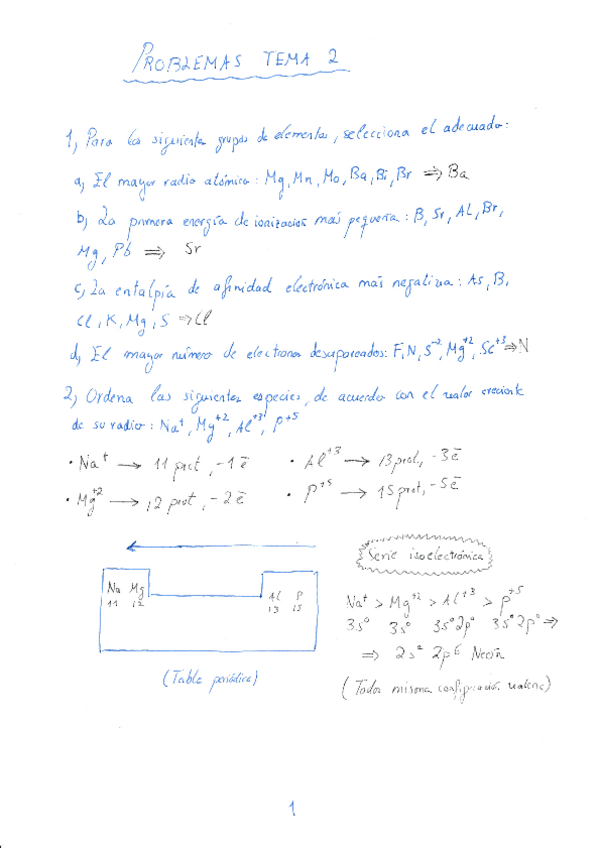 PROBLEMAS TEMA 2
1) Para los siguientes grupos de elementos, selecciona el adecuado:
a) El mayor radio atómico: Mg, Mn, Mo, Ba, Bi, Br ⇒ Ba
b) La primera energía de ionización más pequeña: B, Sr, Al, Br,
Mg, Pb ⇒ Sr
c) La entalpía de afinidad electrónica más negativa: As, B,
Cl, K, Mg, S ⇒ Cl
d) El mayor número de electrones desapareados: F, N, S⁻², Mg⁺², Sc⁺³ ⇒ N
2) Ordena las siguientes especies, de acuerdo con el valor creciente
de su radio: Na⁺, Mg⁺², Al⁺³, P⁺⁵
• Na⁺ → 11 prot, -1 ē • Al⁺³ → 13 prot, -3 ē
• Mg⁺² → 12 prot, -2 ē • P⁺⁵ → 15 prot, -5 ē
Serie isoelectrónica
Na Mg Al P
11 12 13 15
Na⁺ > Mg⁺² > Al⁺³ > P⁺⁵
3s⁰ 3s⁰ 3s⁰2p⁰ 3s⁰2p⁰ ⇒
⇒ 2s² 2p6 Neón
(Tabla periódica)
(Todos misma configuración valencia)
1